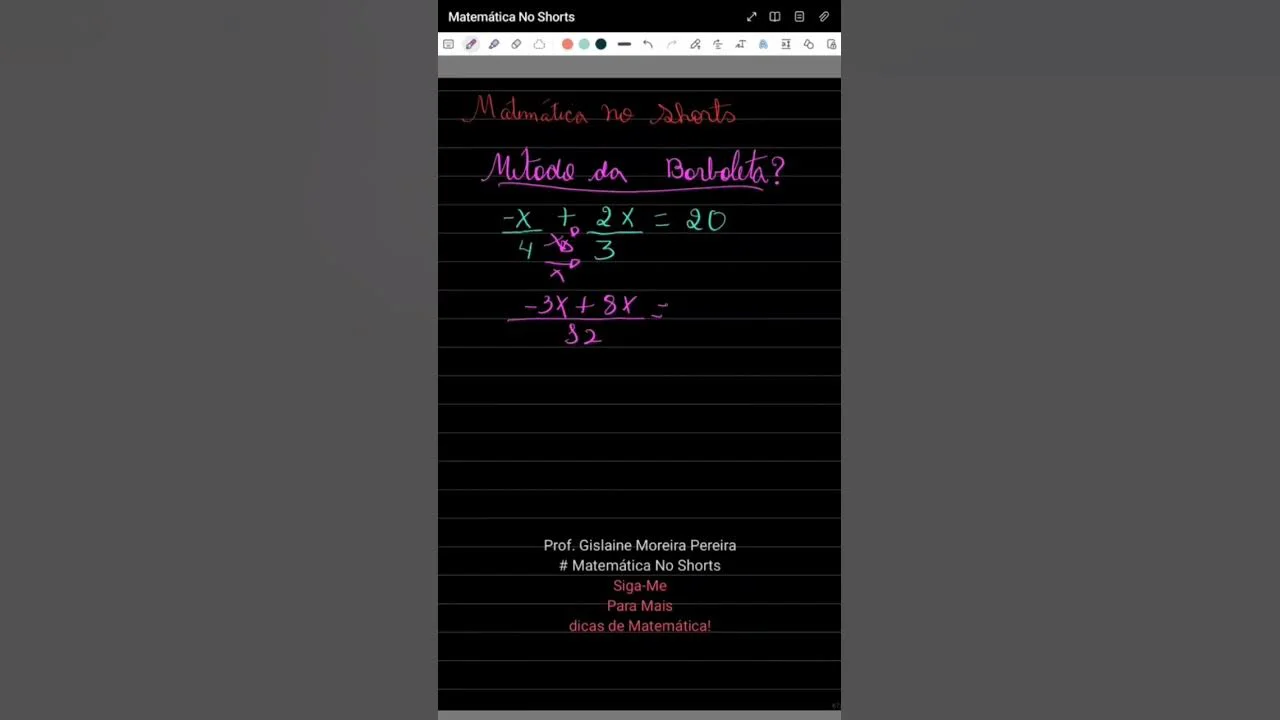 Matemática No Shorts
Matemática no shorts
Método da Borboleta?
-x/4 + 2x/3 = 20
(-3x + 8x)/12 =
Prof. Gislaine Moreira Pereira
# Matemática No Shorts
Siga-Me
Para Mais
dicas de Matemática!